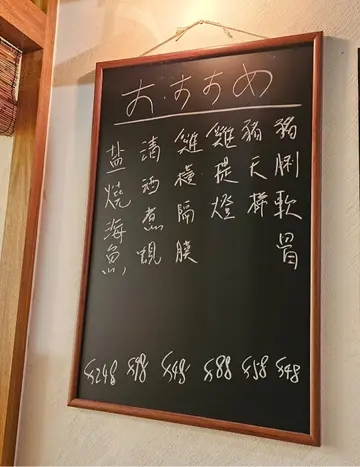 おすすめ
豬脷軟骨
豬天梯
雞提燈
雞橫隔膜
清酒煮蜆
盐燒海魚
$248 $98 $48 $88 $58 $48